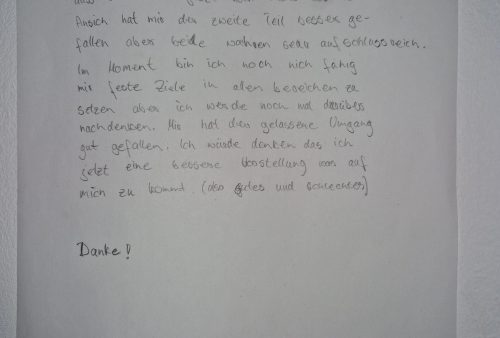 Ansich hat mir der zweite Teil besser ge-
fallen aber beide wahren sehr aufschlussreich.
Im Moment bin ich noch nich fähig
mir feste Ziele in allen bereichen zu
setzen aber ich werde noch mal darüber
nachdenken. Mir hat der gelassene Umgang
gut gefallen. Ich würde denken das ich
jetzt eine bessere Vorstellung von auf
mich zu kommt. (also gutes und schlechtes)
Danke!